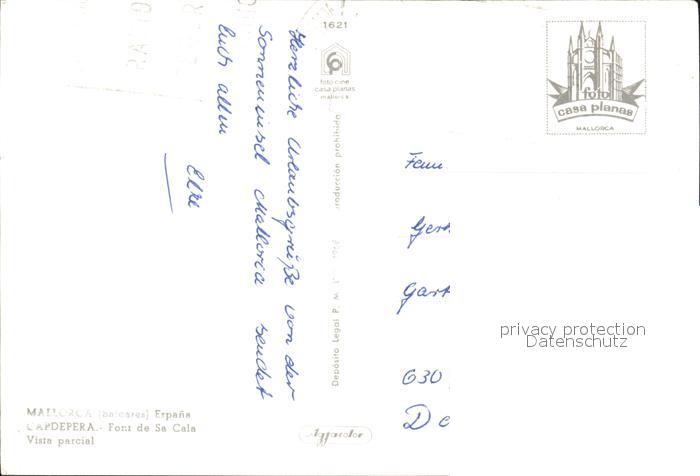 1621
foto cine
casa planas
mallorca
foto
casa planas
MALLORCA
Herzliche Urlaubsgrüße von der
Sonneninsel Mallorca sendet
Euch allen
Elke
Depósito Legal P. M.
prohibida
Fam
Gart
630
privacy protection
Datenschutz
MALLORCA (Baleares) España
CAPDEPERA.- Font de Sa Cala
Vista parcial
Agfacolor